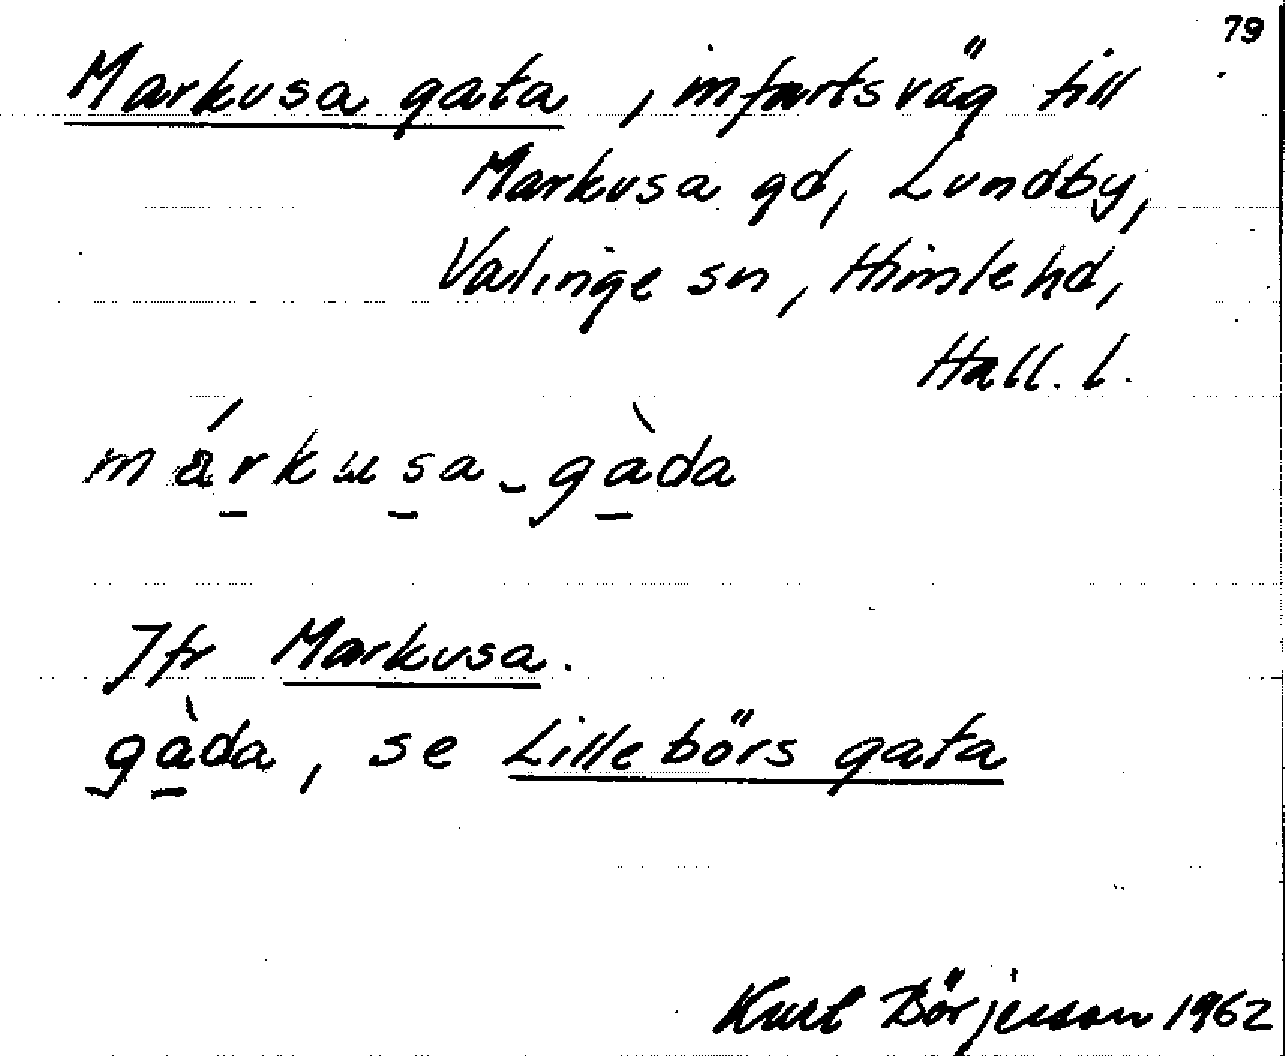 79
Markusa gata, infartsväg till
Markusa gd, Lundby,
Valinge sn, Himle hd,
Hall. l.
márkusa-gàda
Jfr Markusa.
gàda, se Lillebörs gata
Kurt Börjesson 1962